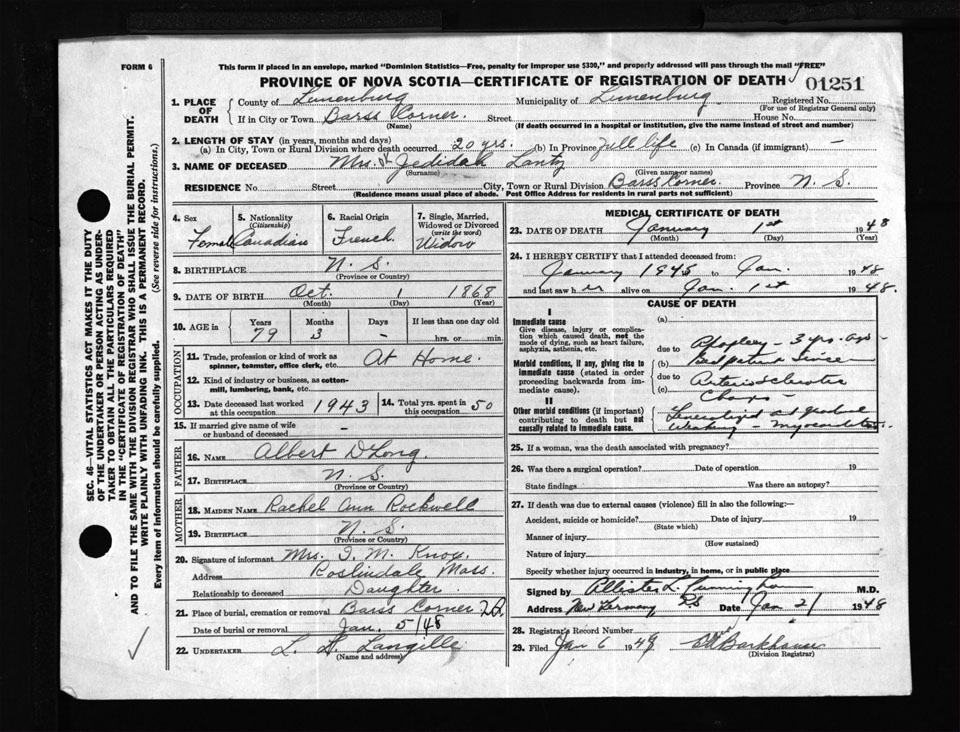 FORM 6
This form if placed in an envelope, marked "Dominion Statistics—Free, penalty for improper use $300," and properly addressed will pass through the mail "FREE"
PROVINCE OF NOVA SCOTIA—CERTIFICATE OF REGISTRATION OF DEATH
01251
1. PLACE OF DEATH { County of Lunenburg Municipality of Lunenburg Registered No.
(For use of Registrar General only)
If in City or Town Barss Corner. Street House No.
(Name) (If death occurred in a hospital or institution, give the name instead of street and number)
2. LENGTH OF STAY (in years, months and days)
(a) In City, Town or Rural Division where death occurred 20 yrs. (b) In Province Full life (c) In Canada (if immigrant) —
3. NAME OF DECEASED Mrs. Jedidah Lantz
(Surname) (Given name or names)
RESIDENCE No. Street City, Town or Rural Division Barss Corner. Province N. S.
(Residence means usual place of abode. Post Office Address for residents in rural parts not sufficient)
4. Sex
Female
5. Nationality
(Citizenship)
Canadian
6. Racial Origin
French.
7. Single, Married, Widowed or Divorced
(write the word)
Widow
8. BIRTHPLACE N. S.
(Province or Country)
9. DATE OF BIRTH Oct. 1 1868
(Month) (Day) (Year)
10. AGE in
Years Months Days If less than one day old
79 3 - hrs. or min.
OCCUPATION
11. Trade, profession or kind of work as spinner, teamster, office clerk, etc. At Home.
12. Kind of industry or business, as cotton-mill, lumbering, bank, etc.
13. Date deceased last worked at this occupation 1943
14. Total yrs. spent in this occupation 50
15. If married give name of wife or husband of deceased -
FATHER
16. Name Albert DLong.
17. Birthplace N. S
(Province or Country)
MOTHER
18. Maiden Name Rachel Ann Rockwell
19. Birthplace N. S.
(Province or Country)
20. Signature of informant Mrs. I. M. Knox.
Address Roslindale Mass.
Relationship to deceased Daughter
21. Place of burial, cremation or removal Barss Corner
Date of burial or removal Jan. 5/48
22. Undertaker L. Langille
(Name and address)
MEDICAL CERTIFICATE OF DEATH
23. DATE OF DEATH January 1st 1948
(Month) (Day) (Year)
24. I HEREBY CERTIFY that I attended deceased from:
January 1945 to Jan. 1948
and last saw her alive on Jan. 1st 1948.
CAUSE OF DEATH
I
Immediate cause
Give disease, injury or complication which caused death, not the mode of dying, such as heart failure, asphyxia, asthenia, etc.
(a)
due to
3 yrs. ago -
Morbid conditions, if any, giving rise to immediate cause (stated in order proceeding backwards from immediate cause).
(b) Bed patient since
due to Arteriosclerotic
(c)
II
Other morbid conditions (if important) contributing to death but not causally related to immediate cause.
Generalized
25. If a woman, was the death associated with pregnancy?
26. Was there a surgical operation? Date of operation 19
State findings Was there an autopsy?
27. If death was due to external causes (violence) fill in also the following:—
Accident, suicide or homicide? Date of injury 19
(State which)
Manner of injury
(How sustained)
Nature of injury
Specify whether injury occurred in industry, in home, or in public place
Signed by M.D.
Address New Germany NS Date Jan 2/ 1948
28. Registrar's Record Number
29. Filed Jan 6 19 Barkhouse
(Division Registrar)
SEC. 46—VITAL STATISTICS ACT MAKES IT THE DUTY
OF THE UNDERTAKER OR PERSON ACTING AS UNDER-
TAKER TO OBTAIN ALL THE PARTICULARS REQUIRED
IN THE "CERTIFICATE OF REGISTRATION OF DEATH"
AND TO FILE THE SAME WITH THE DIVISION REGISTRAR WHO SHALL ISSUE THE BURIAL PERMIT.
WRITE PLAINLY WITH UNFADING INK. THIS IS A PERMANENT RECORD.
Every item of information should be carefully supplied. (See reverse side for instructions.)